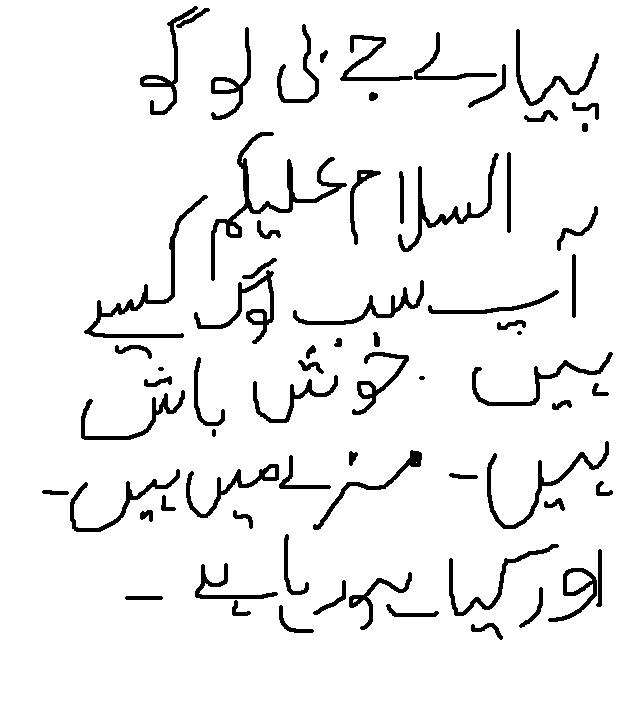 پیارے جے نی لوگو
السلام علیکم
آپ سب لوگ کیسے
ہیں . خوش باش
ہیں - مزے میں ہیں -
اور کیا ہو رہا ہے -